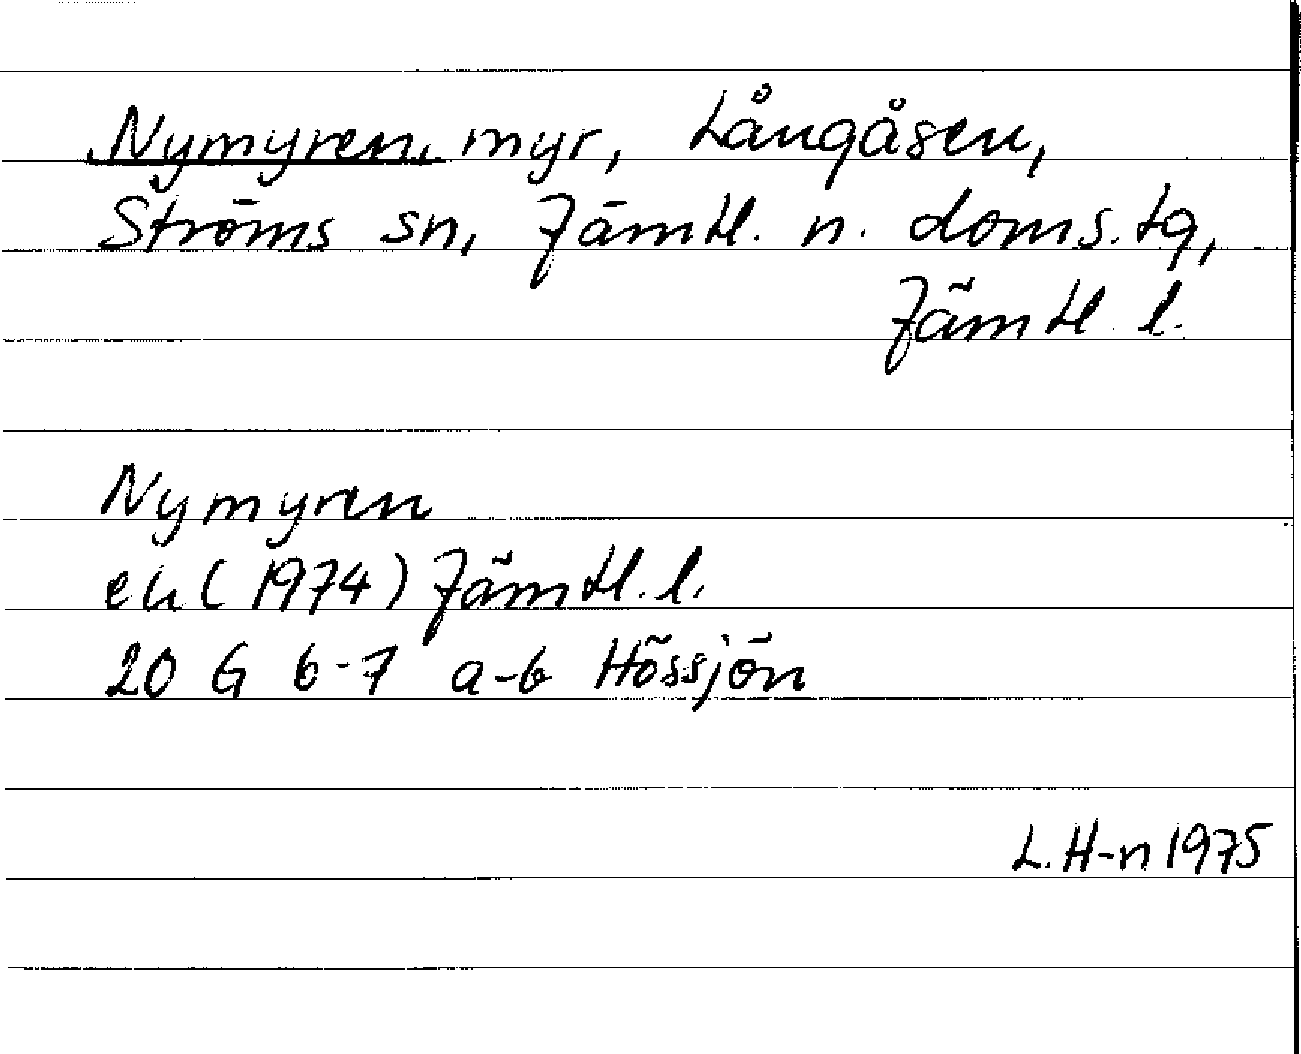 Nymyren, myr, Långåsen,
Ströms sn, Jämtl. n. doms.tg,
Jämtl. l.
Nymyren
ek (1974) Jämtl. l.
20 G 6-7 a-b Hössjön
L. H-n 1975